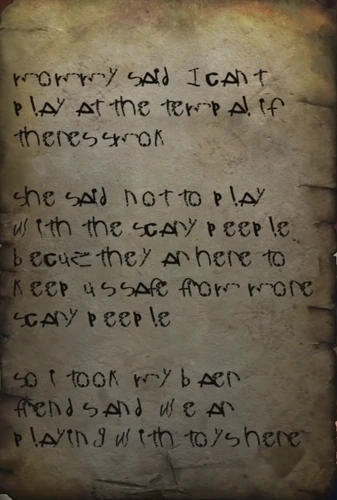 mommy said I cant
play at the tempal if
theres smok
she said not to play
with the scary peeple
becuz they ar here to
keep us safe from more
scary peeple
so i took my baer
friend s and we ar
playing with toys here